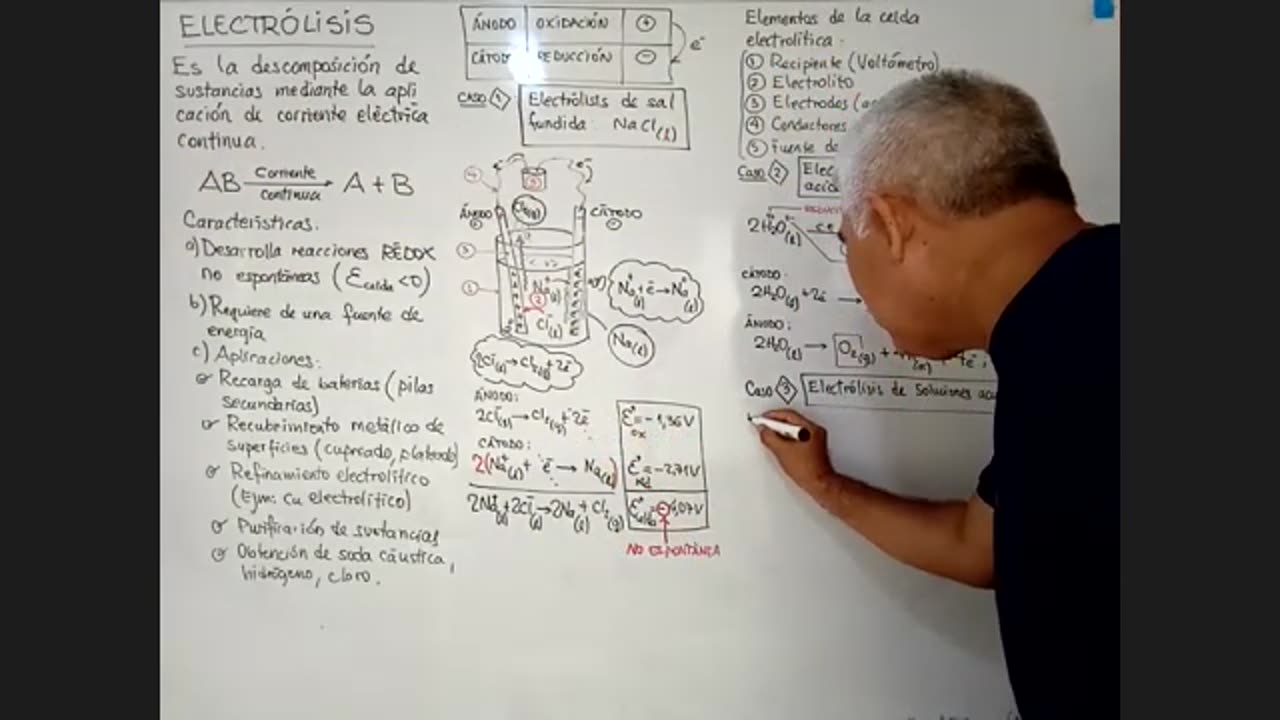 ELECTRÓLISIS
Es la descomposición de
sustancias mediante la apli
cación de corriente eléctrica
continua.
AB Corriente continua → A + B
Características.
a) Desarrolla reacciones REDOX
no espontáneas (Ecelda < 0)
b) Requiere de una fuente de
energía
c) Aplicaciones:
Recarga de baterías (pilas
secundarias)
Recubrimiento metálico de
superficies (cupreado, plateado)
Refinamiento electrolítico
(Ejm: Cu electrolítico)
Purificación de sustancias
Obtención de soda cáustica,
hidrógeno, cloro.
ÁNODO OXIDACIÓN +
CÁTODO REDUCCIÓN - e-
CASO 1 Electrólisis de sal
fundida: NaCl(l)
4 e- 5 e-
Cl2(g)
ÁNODO + CÁTODO -
3
1 Na+(l) 2 Na+(l) + e- → Na(l)
Cl-(l) Na(l)
2Cl-(l) → Cl2(g) + 2e-
ÁNODO:
2Cl-(l) → Cl2(g) + 2e- E°ox = -1,36V
CÁTODO:
2(Na+(l) + e- → Na(l)) E°red = -2,71V
2Na+(l) + 2Cl-(l) → 2Na(l) + Cl2(g) E°celda = -4,07V
NO ESPONTÁNEA
Elementos de la celda
electrolítica:
1 Recipiente (Voltámetro)
2 Electrolito
3 Electrodos
4 Conductores
5 Fuente de
Caso 2
2H2O(l) c.e
CÁTODO:
2H2O(l) + 2e- →
ÁNODO:
2H2O(l) → O2(g) + 4H+(ac) + 4e-
Caso 3 Electrólisis de Soluciones